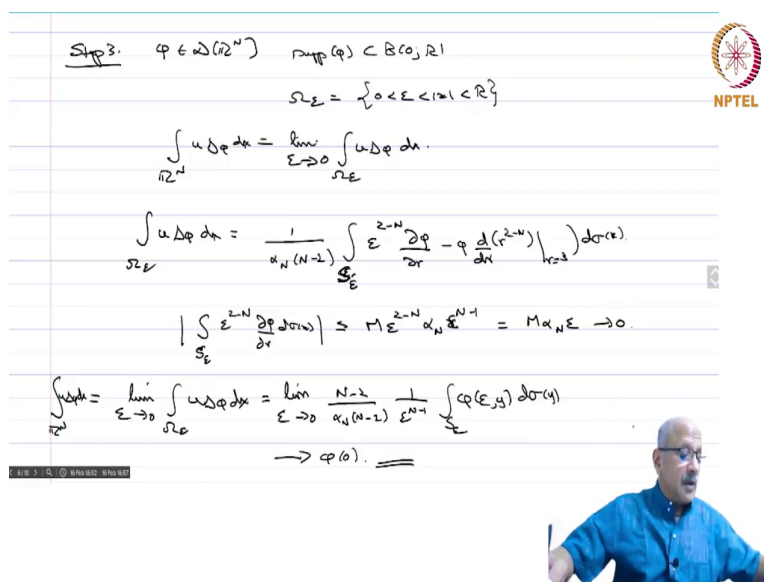 Step 3. φ ∈ 𝒟(ℝ^N) supp(φ) ⊂ B(0; R)
NPTEL
Ω_ε = {0 < ε < |x| < R}
∫_{ℝ^N} u Δφ dx = lim_{ε→0} ∫_{Ω_ε} u Δφ dx.
∫_{Ω_ε} u Δφ dx = 1/(α_N (N-2)) ∫_{S_ε} ε^{2-N} ∂φ/∂r - φ d/dr (r^{2-N}) |_{r=ε} ) dσ(x).
| ∫_{S_ε} ε^{2-N} ∂φ/∂r dσ(x) | ≤ M ε^{2-N} α_N ε^{N-1} = M α_N ε → 0.
∫_{ℝ^N} uΔφ dx = lim_{ε→0} ∫_{Ω_ε} u Δφ dx = lim_{ε→0} N-2/(α_N (N-2)) 1/ε^{N-1} ∫_{S_ε} φ(ε, y) dσ(y)
→ φ(0).